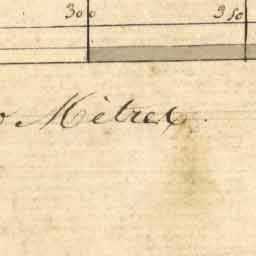 300 350
Mètres.